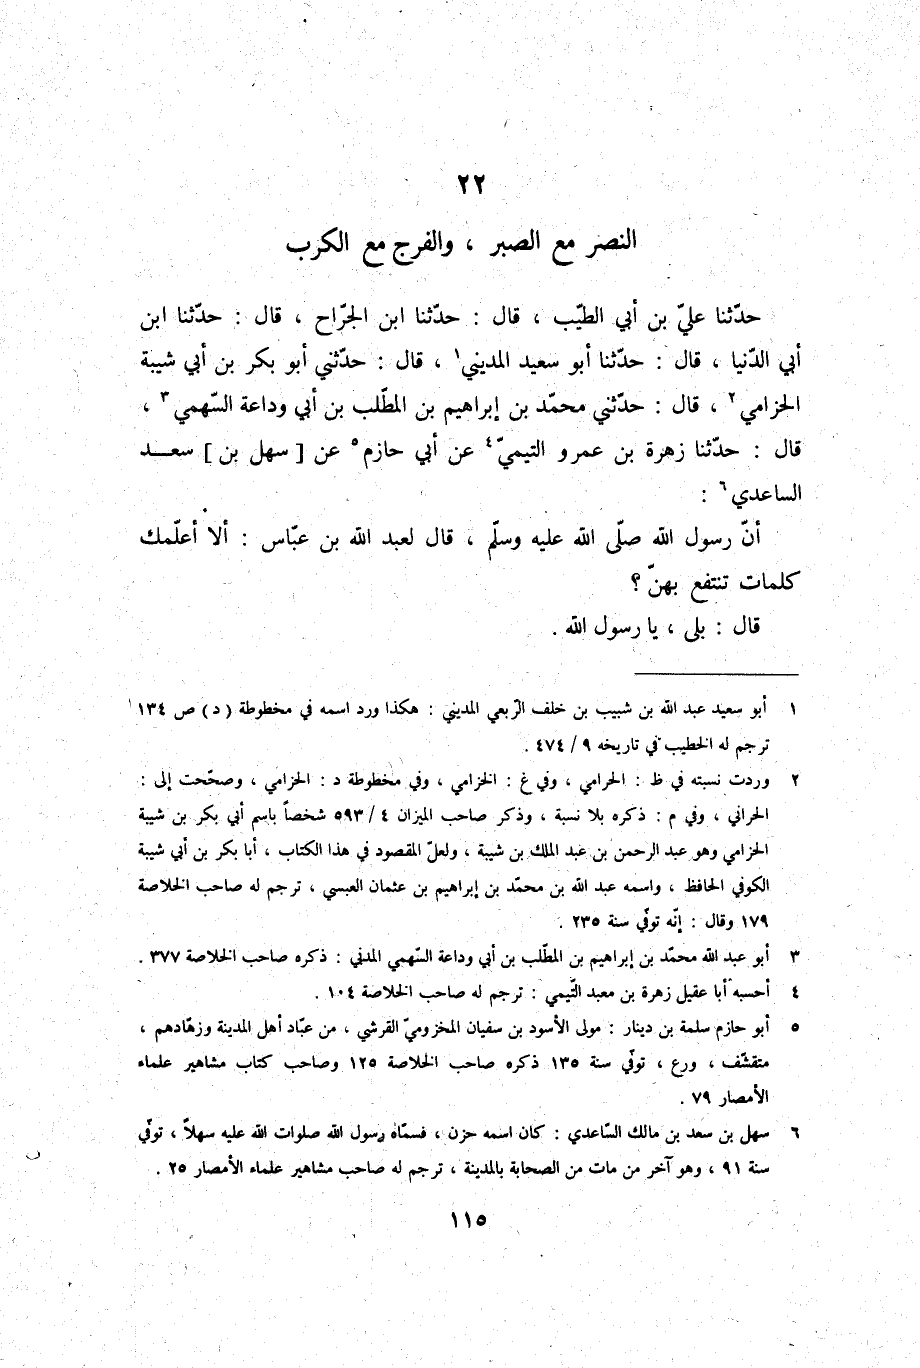 ٢٢
النصر مع الصبر ، والفرج مع الكرب
حدّثنا عليّ بن أبي الطيّب ، قال : حدّثنا ابن الجرّاح ، قال : حدّثنا ابن
أبي الدّنيا ، قال : حدّثنا أبو سعيد المديني١ ، قال : حدّثني أبو بكر بن أبي شيبة
الحزامي٢ ، قال : حدّثني محمّد بن إبراهيم بن المطّلب بن أبي وداعة السّهمي٣ ،
قال : حدّثنا زهرة بن عمرو التيميّ٤ عن أبي حازم٥ عن [ سهل بن ] سعـــد
الساعدي٦ :
أنّ رسول الله صلّى الله عليه وسلّم ، قال لعبد الله بن عبّاس : ألا أعلّمك
كلمات تنتفع بهنّ ؟
قال : بلى ، يا رسول الله .
١ أبو سعيد عبد الله بن شبيب بن خلف الرّبعي المديني : هكذا ورد اسمه في مخطوطة ( د ) ص ١٣٤
ترجم له الخطيب في تاريخه ٩ / ٤٧٤ .
٢ وردت نسبته في ظ : الحرامي ، وفي غ : الخزامي ، وفي مخطوطة د : الحزامي ، وصحّحت إلى :
الحراني ، وفي م : ذكره بلا نسبة ، وذكر صاحب الميزان ٤ / ٥٩٣ شخصاً باسم أبي بكر بن شيبة
الحزامي وهو عبد الرحمن بن عبد الملك بن شيبة ، ولعلّ المقصود في هذا الكتاب ، أبا بكر بن أبي شيبة
الكوفي الحافظ ، واسمه عبد الله بن محمّد بن إبراهيم بن عثمان العبسي ، ترجم له صاحب الخلاصة
١٧٩ وقال : إنّه توفّي سنة ٢٣٥ .
٣ أبو عبد الله محمّد بن إبراهيم بن المطّلب بن أبي وداعة السّهمي المدني : ذكره صاحب الخلاصة ٣٧٧ .
٤ أحسبه أبا عقيل زهرة بن معبد التّيمي : ترجم له صاحب الخلاصة ١٠٤ .
٥ أبو حازم سلمة بن دينار : مولى الأسود بن سفيان المخزوميّ القرشي ، من عبّاد أهل المدينة وزهّادهم ،
متقشّف ، ورع ، توفّي سنة ١٣٥ ذكره صاحب الخلاصة ١٢٥ وصاحب كتاب مشاهير علماء
الأمصار ٧٩ .
٦ سهل بن سعد بن مالك السّاعدي : كان اسمه حزن ، فسمّاه رسول الله صلوات الله عليه سهلاً ، توفّي
سنة ٩١ ، وهو آخر من مات من الصحابة بالمدينة ، ترجم له صاحب مشاهير علماء الأمصار ٢٥ .
١١٥